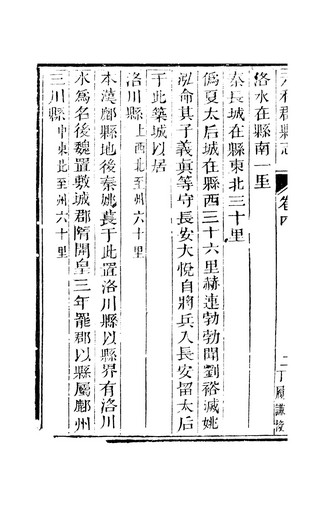 元和郡縣志 卷四
洛水在縣南一里
秦長城在縣東北三十里
僞夏太后城在縣西三十六里赫連勃勃聞劉裕滅姚
泓命其子義真等守長安大悅自將兵入長安留太后
于此築城以居
洛川縣上西北至州六十里
本漢鄜縣地後秦姚萇于此置洛川縣以縣界有洛川
水爲名後魏置敷城郡隋開皇三年罷郡以縣屬鄜州
三川縣中東北至州六十里